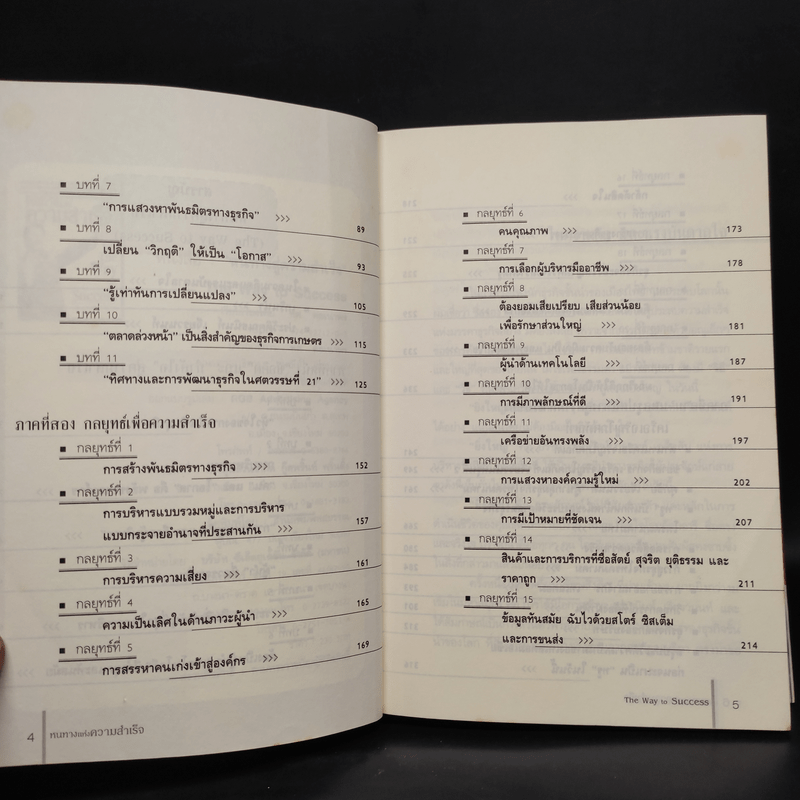 ■ บทที่ 7
"การแสวงหาพันธมิตรทางธุรกิจ" >>> 89
■ บทที่ 8
เปลี่ยน "วิกฤติ" ให้เป็น "โอกาส" >>> 93
■ บทที่ 9
"รู้เท่าทันการเปลี่ยนแปลง" >>> 105
■ บทที่ 10
"ตลาดล่วงหน้า" เป็นสิ่งสำคัญของธุรกิจการเกษตร >>> 115
■ บทที่ 11
"ทิศทางและการพัฒนาธุรกิจในศตวรรษที่ 21" >>> 125
ภาคที่สอง กลยุทธ์เพื่อความสำเร็จ
■ กลยุทธ์ที่ 1
การสร้างพันธมิตรทางธุรกิจ >>> 152
■ กลยุทธ์ที่ 2
การบริหารแบบรวมหมู่และการบริหาร
แบบกระจายอำนาจที่ประสานกัน >>> 157
■ กลยุทธ์ที่ 3
การบริหารความเสี่ยง >>> 161
■ กลยุทธ์ที่ 4
ความเป็นเลิศในด้านภาวะผู้นำ >>> 165
■ กลยุทธ์ที่ 5
การสรรหาคนเก่งเข้าสู่องค์กร >>> 169
4 หนทางแห่งความสำเร็จ
■ กลยุทธ์ที่ 6
คนคุณภาพ >>> 173
■ กลยุทธ์ที่ 7
การเลือกผู้บริหารมืออาชีพ >>> 178
■ กลยุทธ์ที่ 8
ต้องยอมเสียเปรียบ เสียส่วนน้อย
เพื่อรักษาส่วนใหญ่ >>> 181
■ กลยุทธ์ที่ 9
ผู้นำด้านเทคโนโลยี >>> 187
■ กลยุทธ์ที่ 10
การมีภาพลักษณ์ที่ดี >>> 191
■ กลยุทธ์ที่ 11
เครือข่ายอันทรงพลัง >>> 197
■ กลยุทธ์ที่ 12
การแสวงหาองค์ความรู้ใหม่ >>> 202
■ กลยุทธ์ที่ 13
การมีเป้าหมายที่ชัดเจน >>> 207
■ กลยุทธ์ที่ 14
สินค้าและการบริการที่ซื่อสัตย์ สุจริต ยุติธรรม และ
ราคาถูก >>> 211
■ กลยุทธ์ที่ 15
ข้อมูลทันสมัย ฉับไวด้วยสโตร์ ซิสเต็ม
และการขนส่ง >>> 214
The Way to Success 5